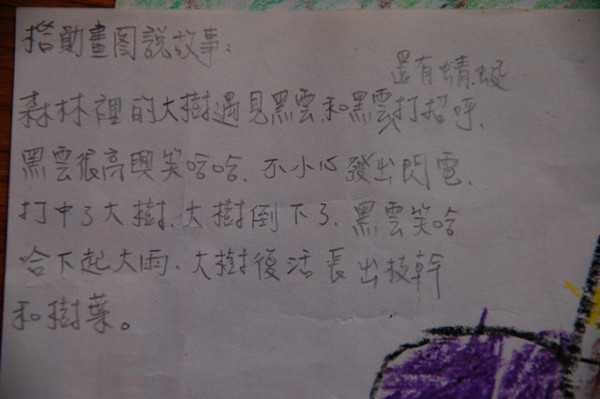 搭動畫图說故事：
還有蜻蜓
森林裡的大樹遇見黑雲、和黑雲打招呼、
黑雲很高興笑哈哈、不小心發出閃電、
打中了大樹、大樹倒下了、黑雲笑哈
哈下起大雨、大樹復活長出枝幹
和樹葉。